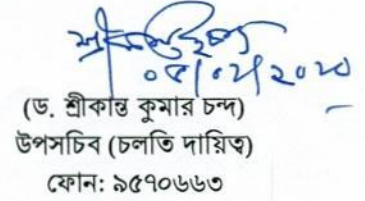 (ড. শ্রীকান্ত কুমার চন্দ)
উপসচিব (চলতি দায়িত্ব)
ফোন: ৯৫৭০৬৬৩